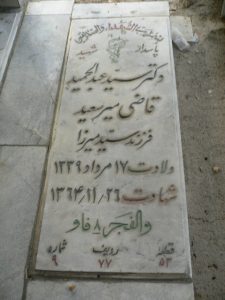 بسم رب الشهداء والصدیقین
پاسدار شهید
دکتر سید عبدالحمید
قاضی میرسعید
فرزند سید میرزا
ولادت ۱۷ مرداد ۱۳۳۹
شهادت ۲۶/۱۱/۱۳۶۴
والفجر ۸ فاو
قطعه ردیف شماره
۵۳ ۷۷ ۹